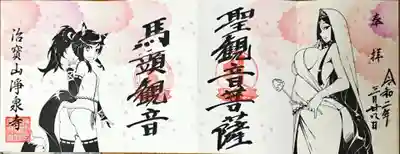 奉拝
令和二年
三月廿八日
聖観音菩薩
馬頭観音
治寳山淨泉寺